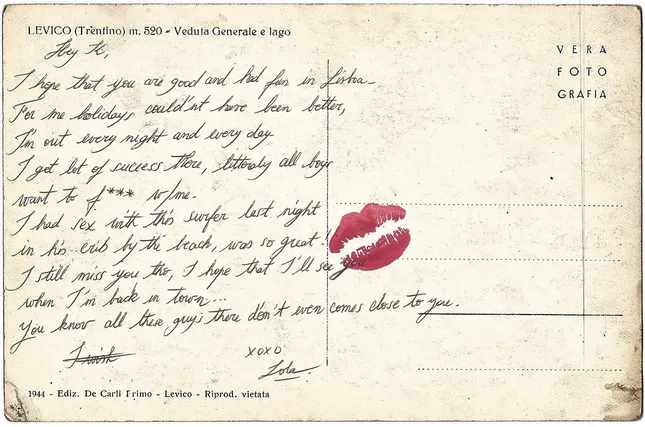 LEVICO (Trentino) m. 520 - Veduta Generale e lago
VERA
FOTO
GRAFIA
Hey H,
I hope that you are good and had fun in Lisboa_
For me holidays could'nt have been better,
I'm out every night and every day
I got lot of success there, litteraly all boys
want to f*** w/me.
I had sex with this surfer last night
in his crib by the beach, was so great!
I still miss you tho, I hope that I'll see you
when I'm back in town...
You know all these guys there don't even comes close to you.
I wish
xoxo
Lola
1944 - Ediz. De Carli Primo - Levico - Riprod. vietata